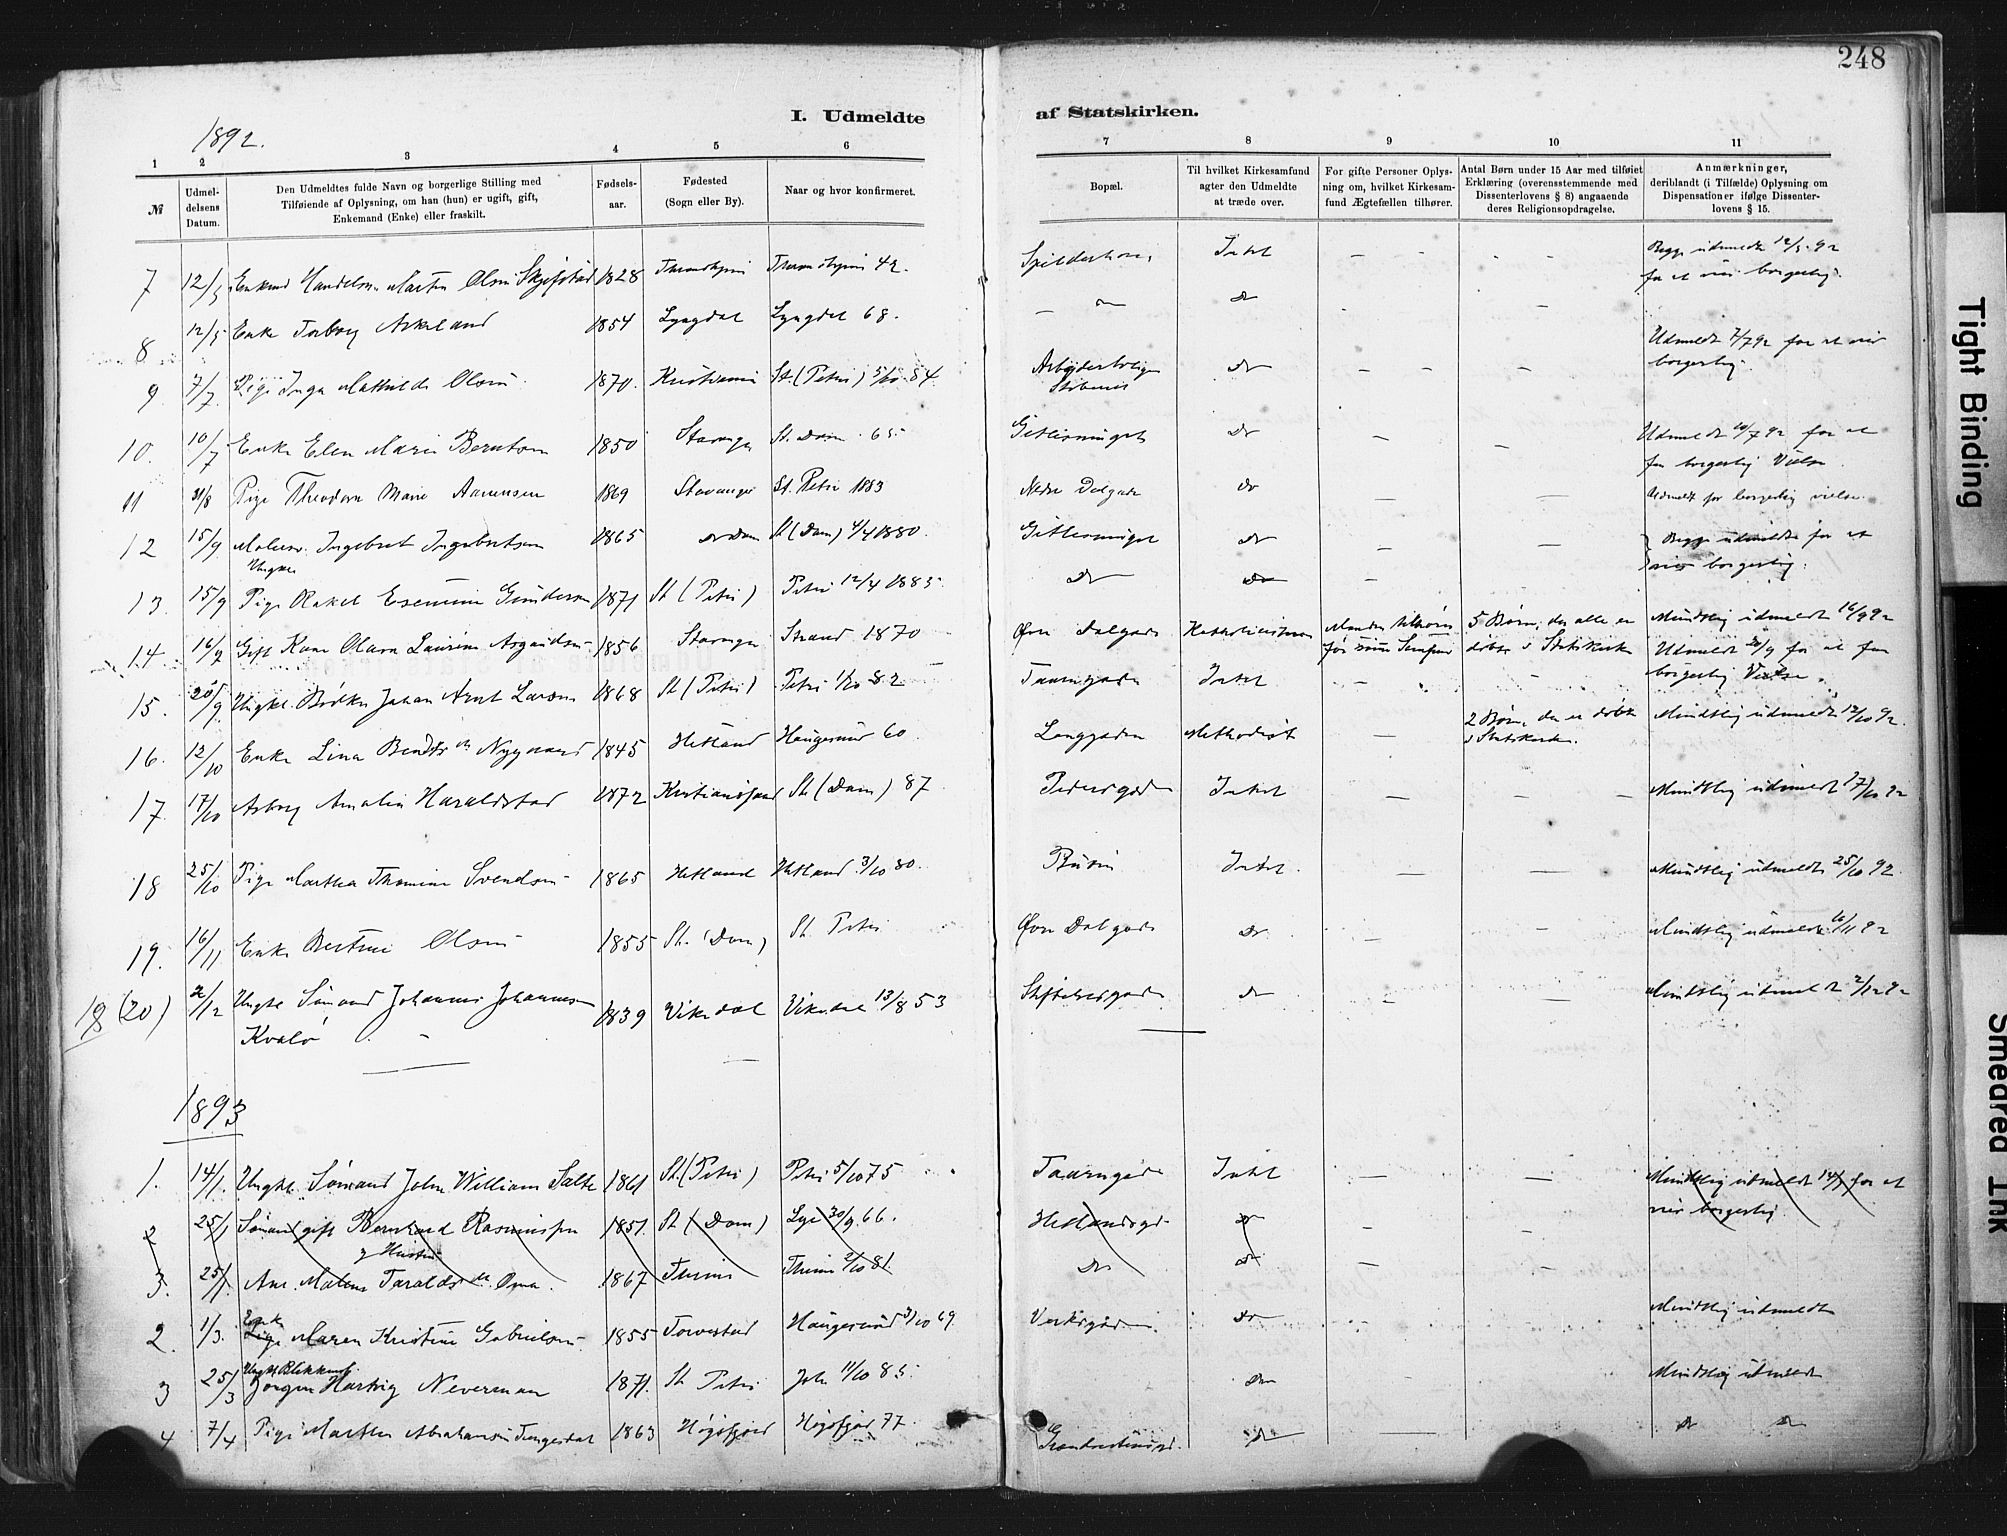 248
I. Udmeldte af Statskirken.
1892.
1 2 3 4 5 6 7 8 9 10 11
№
Udmel-
delsens
Datum.
Den Udmeldtes fulde Navn og borgerlige Stilling med
Tilføiende af Oplysning, om han (hun) er ugift, gift,
Enkemand (Enke) eller fraskilt.
Fødsels-
aar.
Fødested
(Sogn eller By).
Naar og hvor konfirmeret.
Bopæl.
Til hvilket Kirkesamfund
agter den Udmeldte
at træde over.
For gifte Personer Oplys-
ning om, hvilket Kirkesam-
fund Ægtefællen tilhører.
Antal Børn under 15 Aar med tilføiet
Erklæring (overensstemmende med
Dissenterlovens § 8) angaaende
deres Religionsopdragelse.
Anmærkninger,
deriblandt (i Tilfælde) Oplysning om
Dispensationer ifølge Dissenter-
lovens § 15.
7 12/5 Martin Olsen 1828 Intet Begge udmeldt 12/5 92
for at vie borgerlig.
8 12/5 Enke Torborg Askeland 1854 Lyngdal Lyngdal 68. do
9. 7/7 Pige Inga Mathilde Olsen 1870. St. (Petri) 5/10 84. Arbeiderbolig do Udmeldt 7/7 92 for at vie
borgerlig.
10. 10/7 Enke Elen Marie Berntsen 1850 Stavanger St. Dom. 65 do Udmeldt 10/7 92 for at
faa borgerlig Vielse.
11 31/8 Pige Theodora Marie Aanensen 1869 Stavanger St. Petri 1883 Nedre Dalgade do Udmeldt for borgerlig vielse.
12 15/9 Ungkar Ingebret Ingebretsen 1865 do Dom St (Dom) 4/4 1880. do Begge udmeldte for at
vies borgerlig.
13. 15/9 Pige Rakel Gundersen 1871 St (Petri) Petri 12/4 1885 do do
14. 16/9 Gift Kone Olava Laurine 1856 Stavanger Strand 1870 Øvre Dalgade 5 Børn, der alle er
døbte i Statskirken Mundtlig udmeldt 16/9 92
15. 20/9 Ungk. Johan Arnt Larsen 1868 St (Petri) Petri 1/10 82 Intet Udmeldt 20/9 for at faa
borgerlig Vielse.
16. 12/10 Enke Lina Nygaard 1845 Hetland Haugesund 60. Langgaden Methodist 2 Børn, der er døbte
i Statskirken. Mundtlig udmeldt 12/10 92.
17. 17/10 Asborg Amalia Haraldstad 1872 Kristianssand St (Dom) 87 Pedersgade Intet Mundtlig udmeldt 17/10 92
18 25/10 Pige Martha Thomine Svendsen 1865 Hetland Hetland 3/10 80. Intet. Mundtlig udmeldt 25/10 92.
19. 16/11 Enke Bertine Olsen 1855 St. (Dom) St. Petri Øvre Dalgade do Mundtlig udmeldt 16/11 92
18 (20) 2/12 Ungk. Sømand Johannes Johannesen 1839 Vikedal Vikedal 13/8 53 do Mundtlig udmeldt 2/12 92
Kvalø
1893
1. 14/1. Ungk. Sømand John William Salte 1861 St (Petri) Petri 5/10 75 Intet Mundtlig udmeldt for at
vies borgerlig.
2 25/1 Sømand gift Bernhard Rasmussen 1851. St (Dom) Lye 30/9. 66. do
& Hustru
3. 25/1. Ane Malene 1867 Thime Thime 2/10 81. do do
2. 1/3. Enke Maren Kristine Gabrielsen 1855 Torvestad Haugesund 3/10 69. Verksgaden do Mundtlig udmeldt
3 25/3 Ungk. Blikkensl.
Jørgen Hartvig Neverman 1871. St Petri Joh. 11/10 85. do Mundtlig udmeldt
4 7/4 Pige Marthe Abrahamsen Tengesdal 1863 Høgsfjord Høgsfjord 77. do do do
Tight Binding
Smeared Ink